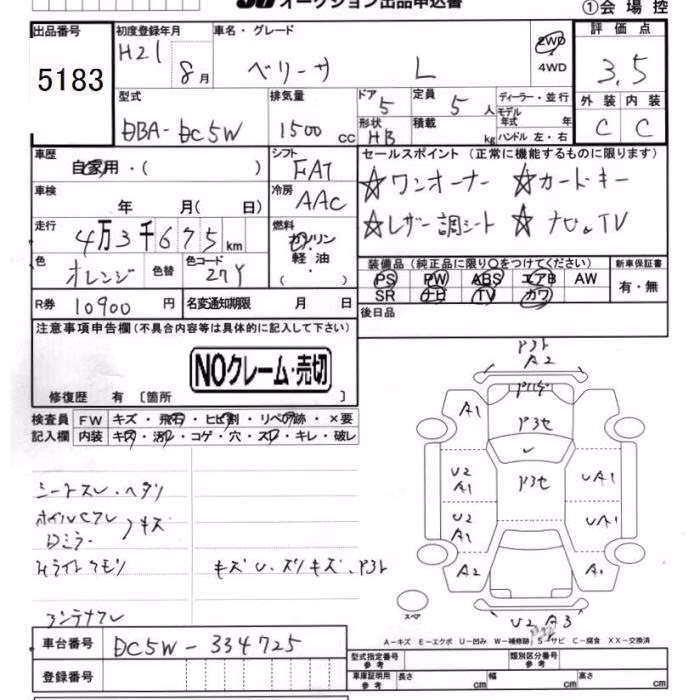 オークション出品申込書
①会場控
出品番号
5183
初度登録年月
H21
8月
車名・グレード
ベリーサ L
2WD
4WD
評価点
3.5
外装 内装
C C
型式
DBA-DC5W
排気量
1500 cc
ドア
5
形状
HB
定員
5人
積載
kg
ディーラー・並行
モデル年式 年
ハンドル 左・右
車歴
自家用・( )
シフト
FAT
車検
年 月( 日)
冷房
AAC
走行
4万3千675km
燃料
ガソリン
軽油
( ・ )
色
オレンジ
色替
色コード
27Y
R券
10900円
名変通知期限 月 日
セールスポイント(正常に機能するものに限ります)
☆ワンオーナー ☆カードキー
☆レザー調シート ☆ナビ。TV
装備品(純正品に限り○をつけてください)
PS PW ABS エアB AW
SR ナビ TV カワ
新車保証書
有・無
後日品
注意事項申告欄(不具合内容等は具体的に記入して下さい)
NOクレーム・売切
修復歴 有 〔箇所 〕
検査員記入欄
FW キズ・飛石・ヒビ割・リペア跡・×要
内装 キズ・汚レ・コゲ・穴・スレ・キレ・破レ
シートスレ、ヘタリ
ホイルCワレ
Dミラー
キズ
Hライトクモリ
キズU、スリキズ、アヨト
アンテナワレ
A2
A1
U2
A1
U2
A1
A2
UA1
UA1
A1
U2 A3
スペア
A－キズ E－エクボ U－凹み W－補修跡 S－サビ C－腐食 XX－交換済
車台番号
DC5W-334725
登録番号
型式指定番号
参考
類別区分番号
参考
車庫証明用
参考
長さ cm
幅 cm
高さ cm